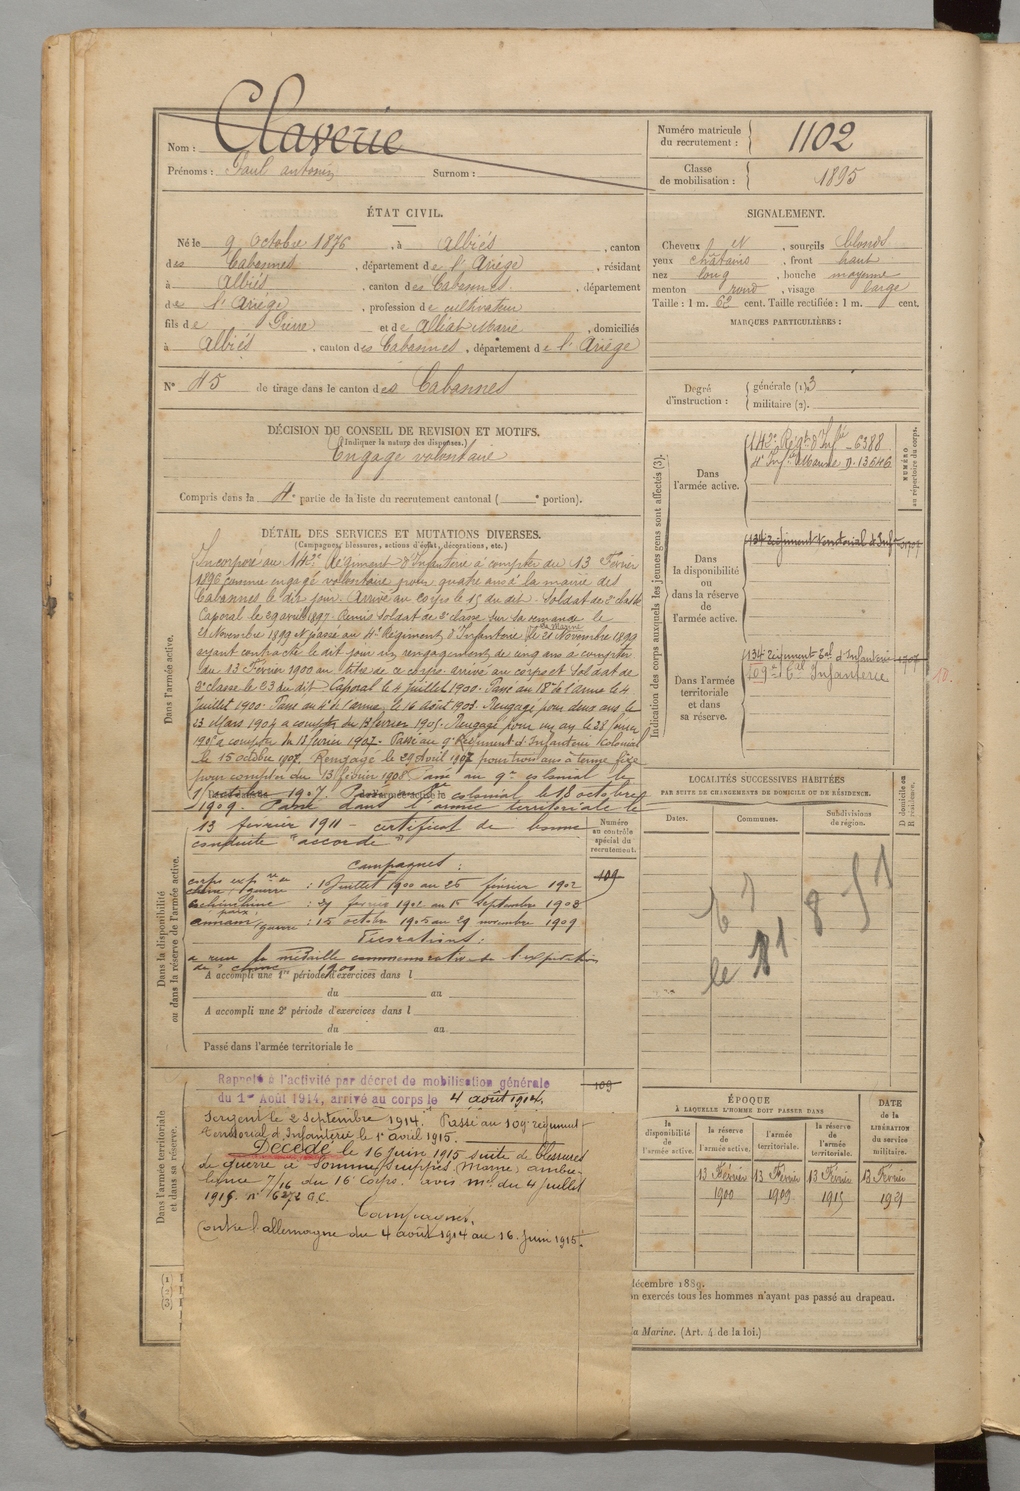 Nom : Claverie
Prénoms : Paul Antonin Surnom :
Numéro matricule
du recrutement : 1102
Classe
de mobilisation : 1895
ÉTAT CIVIL.
Né le 9 Octobre 1876, à Albiés, canton
des Cabannes, département de l'Ariège, résidant
à Albiés, canton des Cabannes, département
de l'Ariège, profession de cultivateur
fils de Pierre et de Alliat Marie, domiciliés
à Albiés, canton des Cabannes, département de l'Ariège
N° 45 de tirage dans le canton des Cabannes
SIGNALEMENT.
Cheveux et, sourcils blonds
yeux châtains, front haut
nez long, bouche moyenne
menton rond, visage large
Taille : 1 m. 62 cent. Taille rectifiée : 1 m. cent.
MARQUES PARTICULIÈRES :
Degré
d'instruction :
générale (1). 3
militaire (2).
DÉCISION DU CONSEIL DE REVISION ET MOTIFS.
(Indiquer la nature des dispenses.)
Engagé volontaire
Compris dans la 4e partie de la liste du recrutement cantonal ( e portion).
DÉTAIL DES SERVICES ET MUTATIONS DIVERSES.
(Campagnes, blessures, actions d'éclat, décorations, etc.)
Dans l'armée active.
Incorporé au 142e Régiment d'Infanterie à compter du 13 Février
1896 comme engagé volontaire pour quatre ans à la mairie des
Cabannes le dit jour. Arrivé au corps le 15 du dit. Soldat de 2e classe
Caporal le 29 avril 1897. Remis soldat de 2e classe sur sa demande le
21 Novembre 1899 et passé au 4e Régiment d'Infanterie de Marine le 21 Novembre 1899
ayant contracté le dit jour un rengagement de cinq ans à compter
du 13 Février 1900 au titre de ce corps arrivé au corps et soldat de
2e classe le 23 du dit. Caporal le 4 Juillet 1900. Passé au 18e de l'arme le 4
Juillet 1900. Passé au 4e de l'arme, le 16 Août 1903. Rengagé pour deux ans le
23 Mars 1904 à compter du 13 février 1905. Rengagé pour un an le 28
à compter du 13 février 1907. Passé au 9e Régiment d'Infanterie Coloniale
le 15 octobre 1907. Rengagé le 29 Avril 1907 pour trois ans à terme fixe
pour compter du 13 février 1908. Passé au 9e colonial le
octobre 1907. Passé au colonial le 18 octobre
1909. Passé dans l'armée territoriale le
13 février 1911 - certificat de bonne
conduite "accordé"
Dans la disponibilité
ou dans la réserve de l'armée active.
Campagnes :
Chine, guerre : 1 Juillet 1900 au 25 février 1902
Cochinchine : 27 février 1902 au 15 Septembre 1903
paix,
annam guerre : 15 octobre 1905 au 29 novembre 1909
Décorations :
a reçu la médaille commémorative de l'expédition
de "chine" 1900
A accompli une 1re période d'exercices dans l
du au
A accompli une 2e période d'exercices dans l
du au
Passé dans l'armée territoriale le
Numéro
au contrôle
spécial du
recrutement.
109
109
Dans l'armée territoriale
et dans sa réserve.
Rappelé à l'activité par décret de mobilisation générale
du 1er Août 1914, arrivé au corps le 4 août 1914.
Sergent le 2 Septembre 1914. Passé au 109e régiment
territorial d'Infanterie le 1er avril 1915.
Décédé le 16 Juin 1915 suite de blessures
de guerre à Somme-Suippes (Marne) ambu-
lance 7/16 du 16e Corps. avis mel du 4 Juillet
1915. n° 6272 O.C.
Campagnes.
Contre l'allemagne du 4 août 1914 au 16 Juin 1915.
(1)
(2)
(3)
Indication des corps auxquels les jeunes gens sont affectés (3).
NUMÉRO
au répertoire du corps.
Dans
l'armée active.
142e Régt d'Infie 6388
4e Infie Marine n° 13646
Dans
la disponibilité
ou
dans la réserve
de
l'armée active.
134e régiment territorial d'Infie
Dans l'armée
territoriale
et dans
sa réserve.
134e régiment tal d'Infanterie 1907
109e tal Infanterie
10.
LOCALITÉS SUCCESSIVES HABITÉES
PAR SUITE DE CHANGEMENTS DE DOMICILE OU DE RÉSIDENCE.
Dates.
Communes.
Subdivisions
de région.
D domicile ou
R résidence.
ÉPOQUE
À LAQUELLE L'HOMME DOIT PASSER DANS
la
disponibilité
de
l'armée active.
la réserve
de
l'armée active.
l'armée
territoriale.
la réserve
de
l'armée
territoriale.
DATE
de la
LIBÉRATION
du service
militaire.
13 Février 13 Février 13 Février 13 Février
1900 1909 1915 1921
décembre 1889.
on exercés tous les hommes n'ayant pas passé au drapeau.
la Marine. (Art. 4 de la loi.)